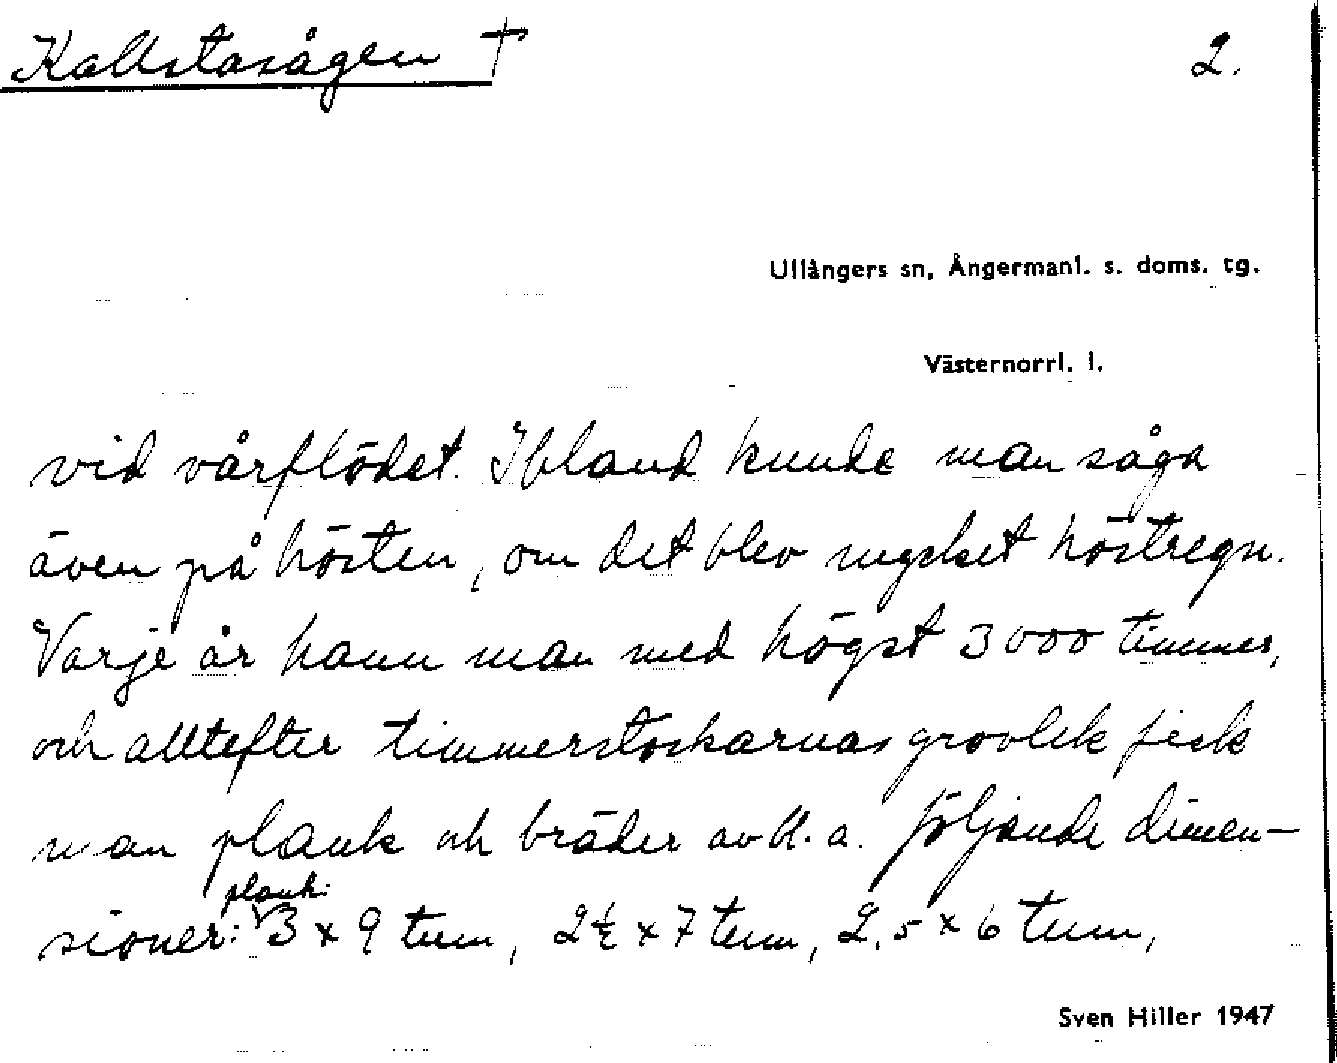 Kallstasågen † 2.
Ullångers sn, Ångermanl. s. doms. tg.
Västernorrl. l.
vid vårflödet. Ibland kunde man såga
även på hösten, om det blev mycket höstregn.
Varje år hann man med högst 3000 timmer,
och alltefter timmerstockarnas grovlek fick
man plank och bräder av bl. a. följande dimen-
plank:
sioner: 3 x 9 tum, 2½ x 7 tum, 2,5 x 6 tum,
Sven Hiller 1947